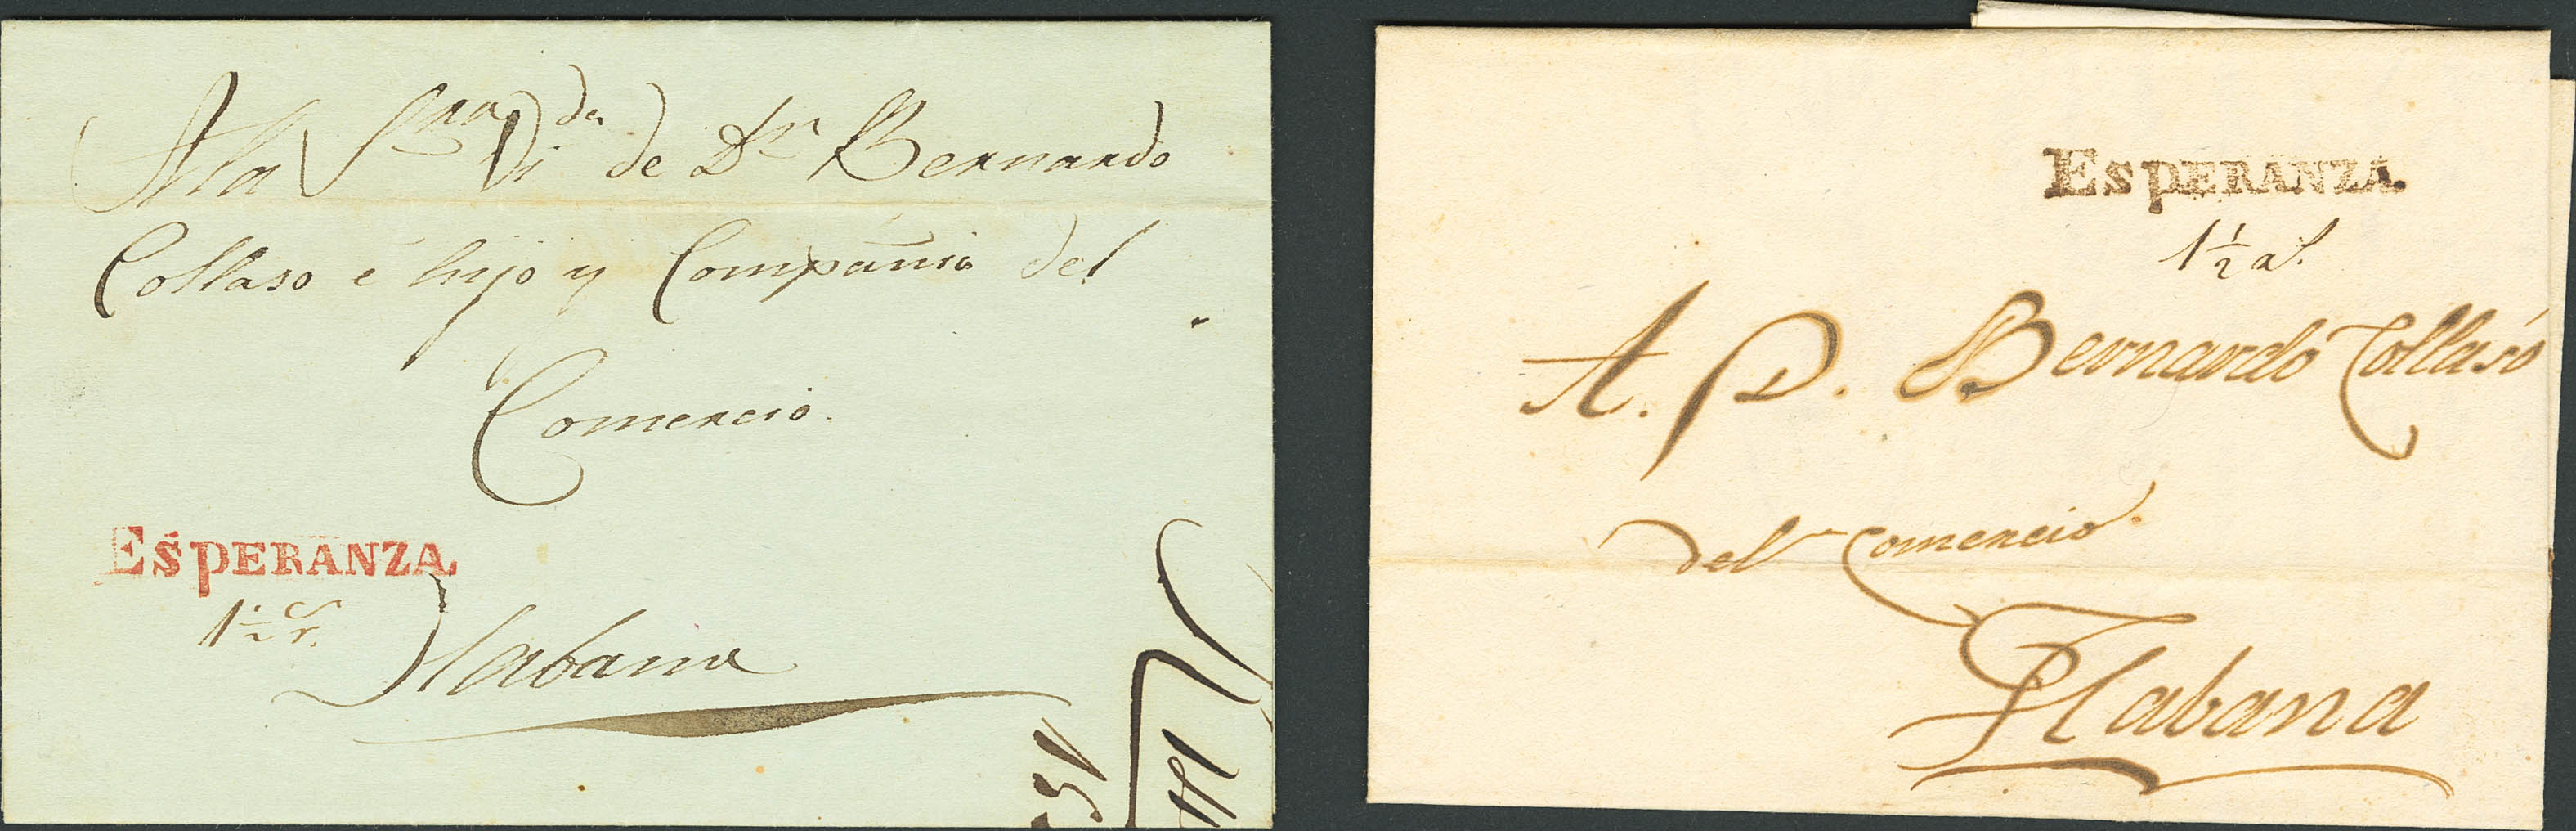 A la Sra Vi.da de Dn Bernardo
Collaso é hijo y Compañia del
Comercio.
ESPERANZA.
1½ r.
Habana
ESPERANZA.
1½
A. D. Bernardo Collaso
del Comercio.
Habana